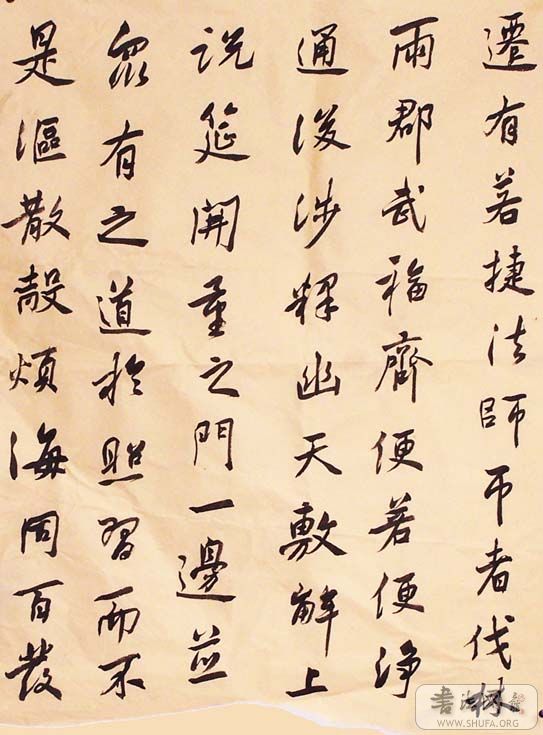 遷有若捷法師帀者伐林
雨郡武福齊便若便淨
通後涉釋幽天敷解上
說筵開重之門一邊並
眾有之道於照習而不
是漚散殼煩海同百發
WWW.SHUFA.ORG